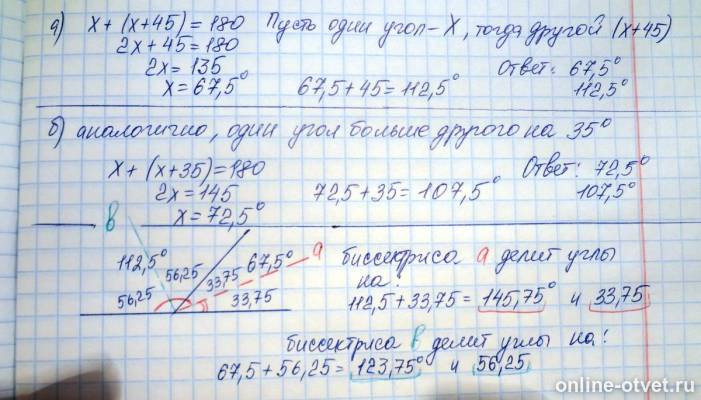 а) x + (x+45) = 180 Пусть один угол – X, тогда другой (x+45)
2x + 45 = 180
2x = 135
x = 67,5° 67,5 + 45 = 112,5° Ответ: 67,5°
112,5°
б) аналогично, один угол больше другого на 35°
x + (x+35) = 180 Ответ: 72,5°
2x = 145 72,5 + 35 = 107,5° 107,5°
x = 72,5°
в
112,5° 56,25 33,75 67,5° а
56,25 33,75
биссектриса а делит углы
на:
112,5 + 33,75 = 145,75° и 33,75
биссектриса в делит углы на:
67,5 + 56,25 = 123,75° и 56,25
online-otvet.ru